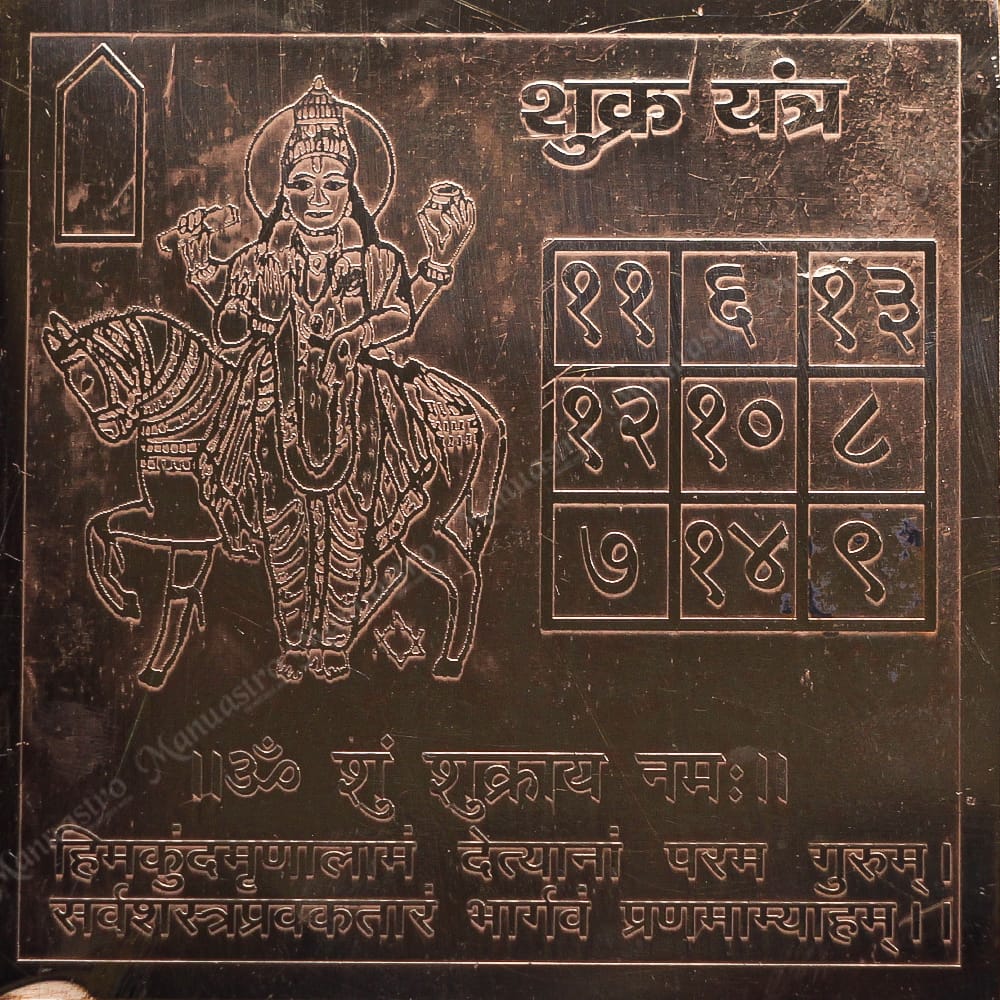 शुक्र यंत्र
११ ६ १३
१२ १० ८
७ १४ ९
।।ॐ शुं शुक्राय नमः।।
हिमकुंदमृणालामं देत्यानां परम गुरुम्।
सर्वशस्त्रप्रवकतारं भार्गवं प्रणमाम्याहम्।।
Manuastro